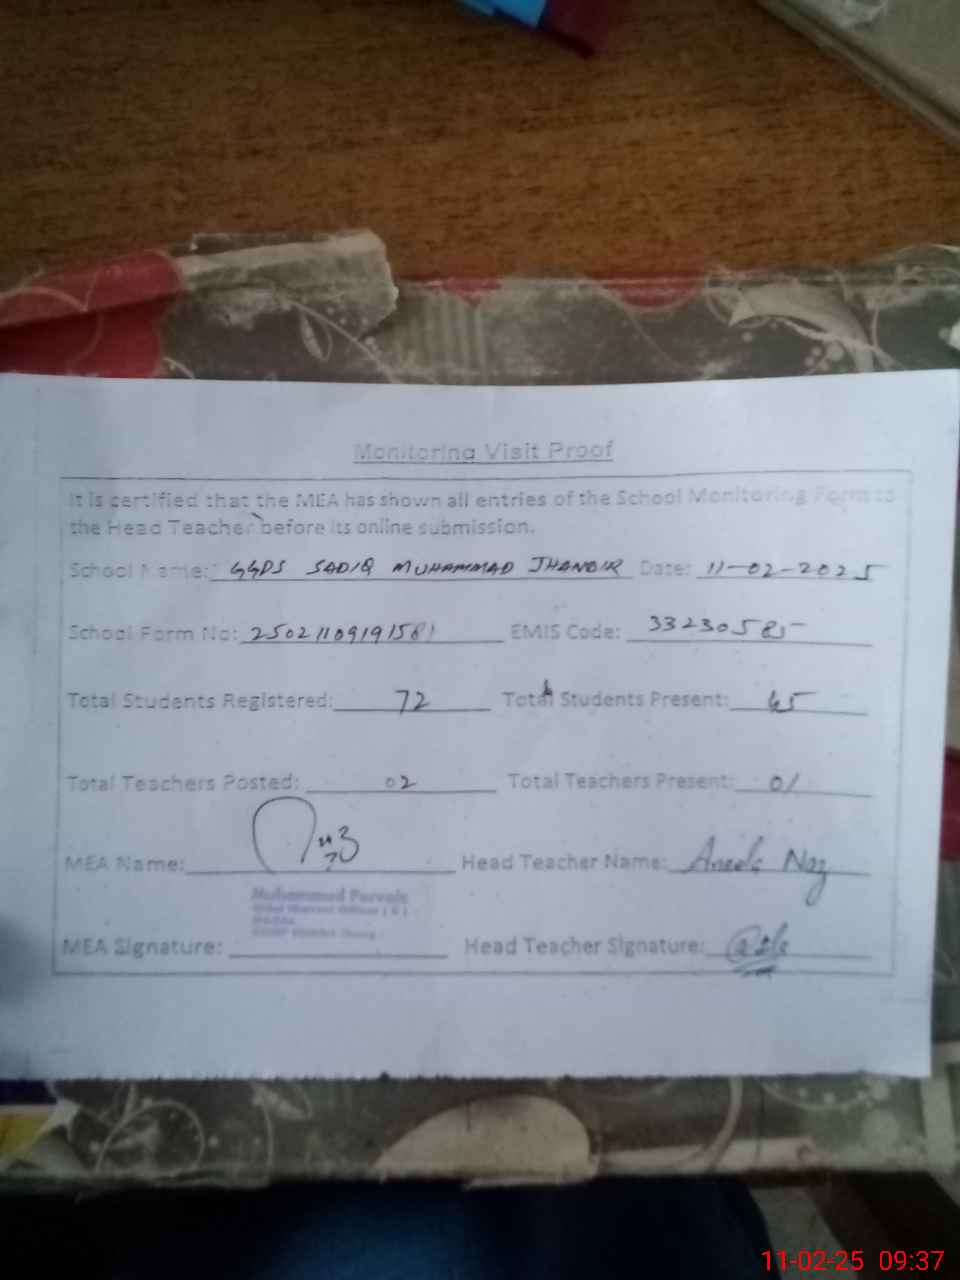 Monitoring Visit Proof
It is certified that the MEA has shown all entries of the School Monitoring Form to
the Head Teacher before its online submission.
School Name: GGPS SADIQ MUHAMMAD JHANDIR Date: 11-02-2025
School Form No: 25021109191581 EMIS Code: 33230585
Total Students Registered: 72 Total Students Present: 45
Total Teachers Posted: 02 Total Teachers Present: 01
MEA Name: Head Teacher Name: Aneela Naz
Muhammad Pervaiz
MEA Signature: Head Teacher Signature:
11-02-25 09:37